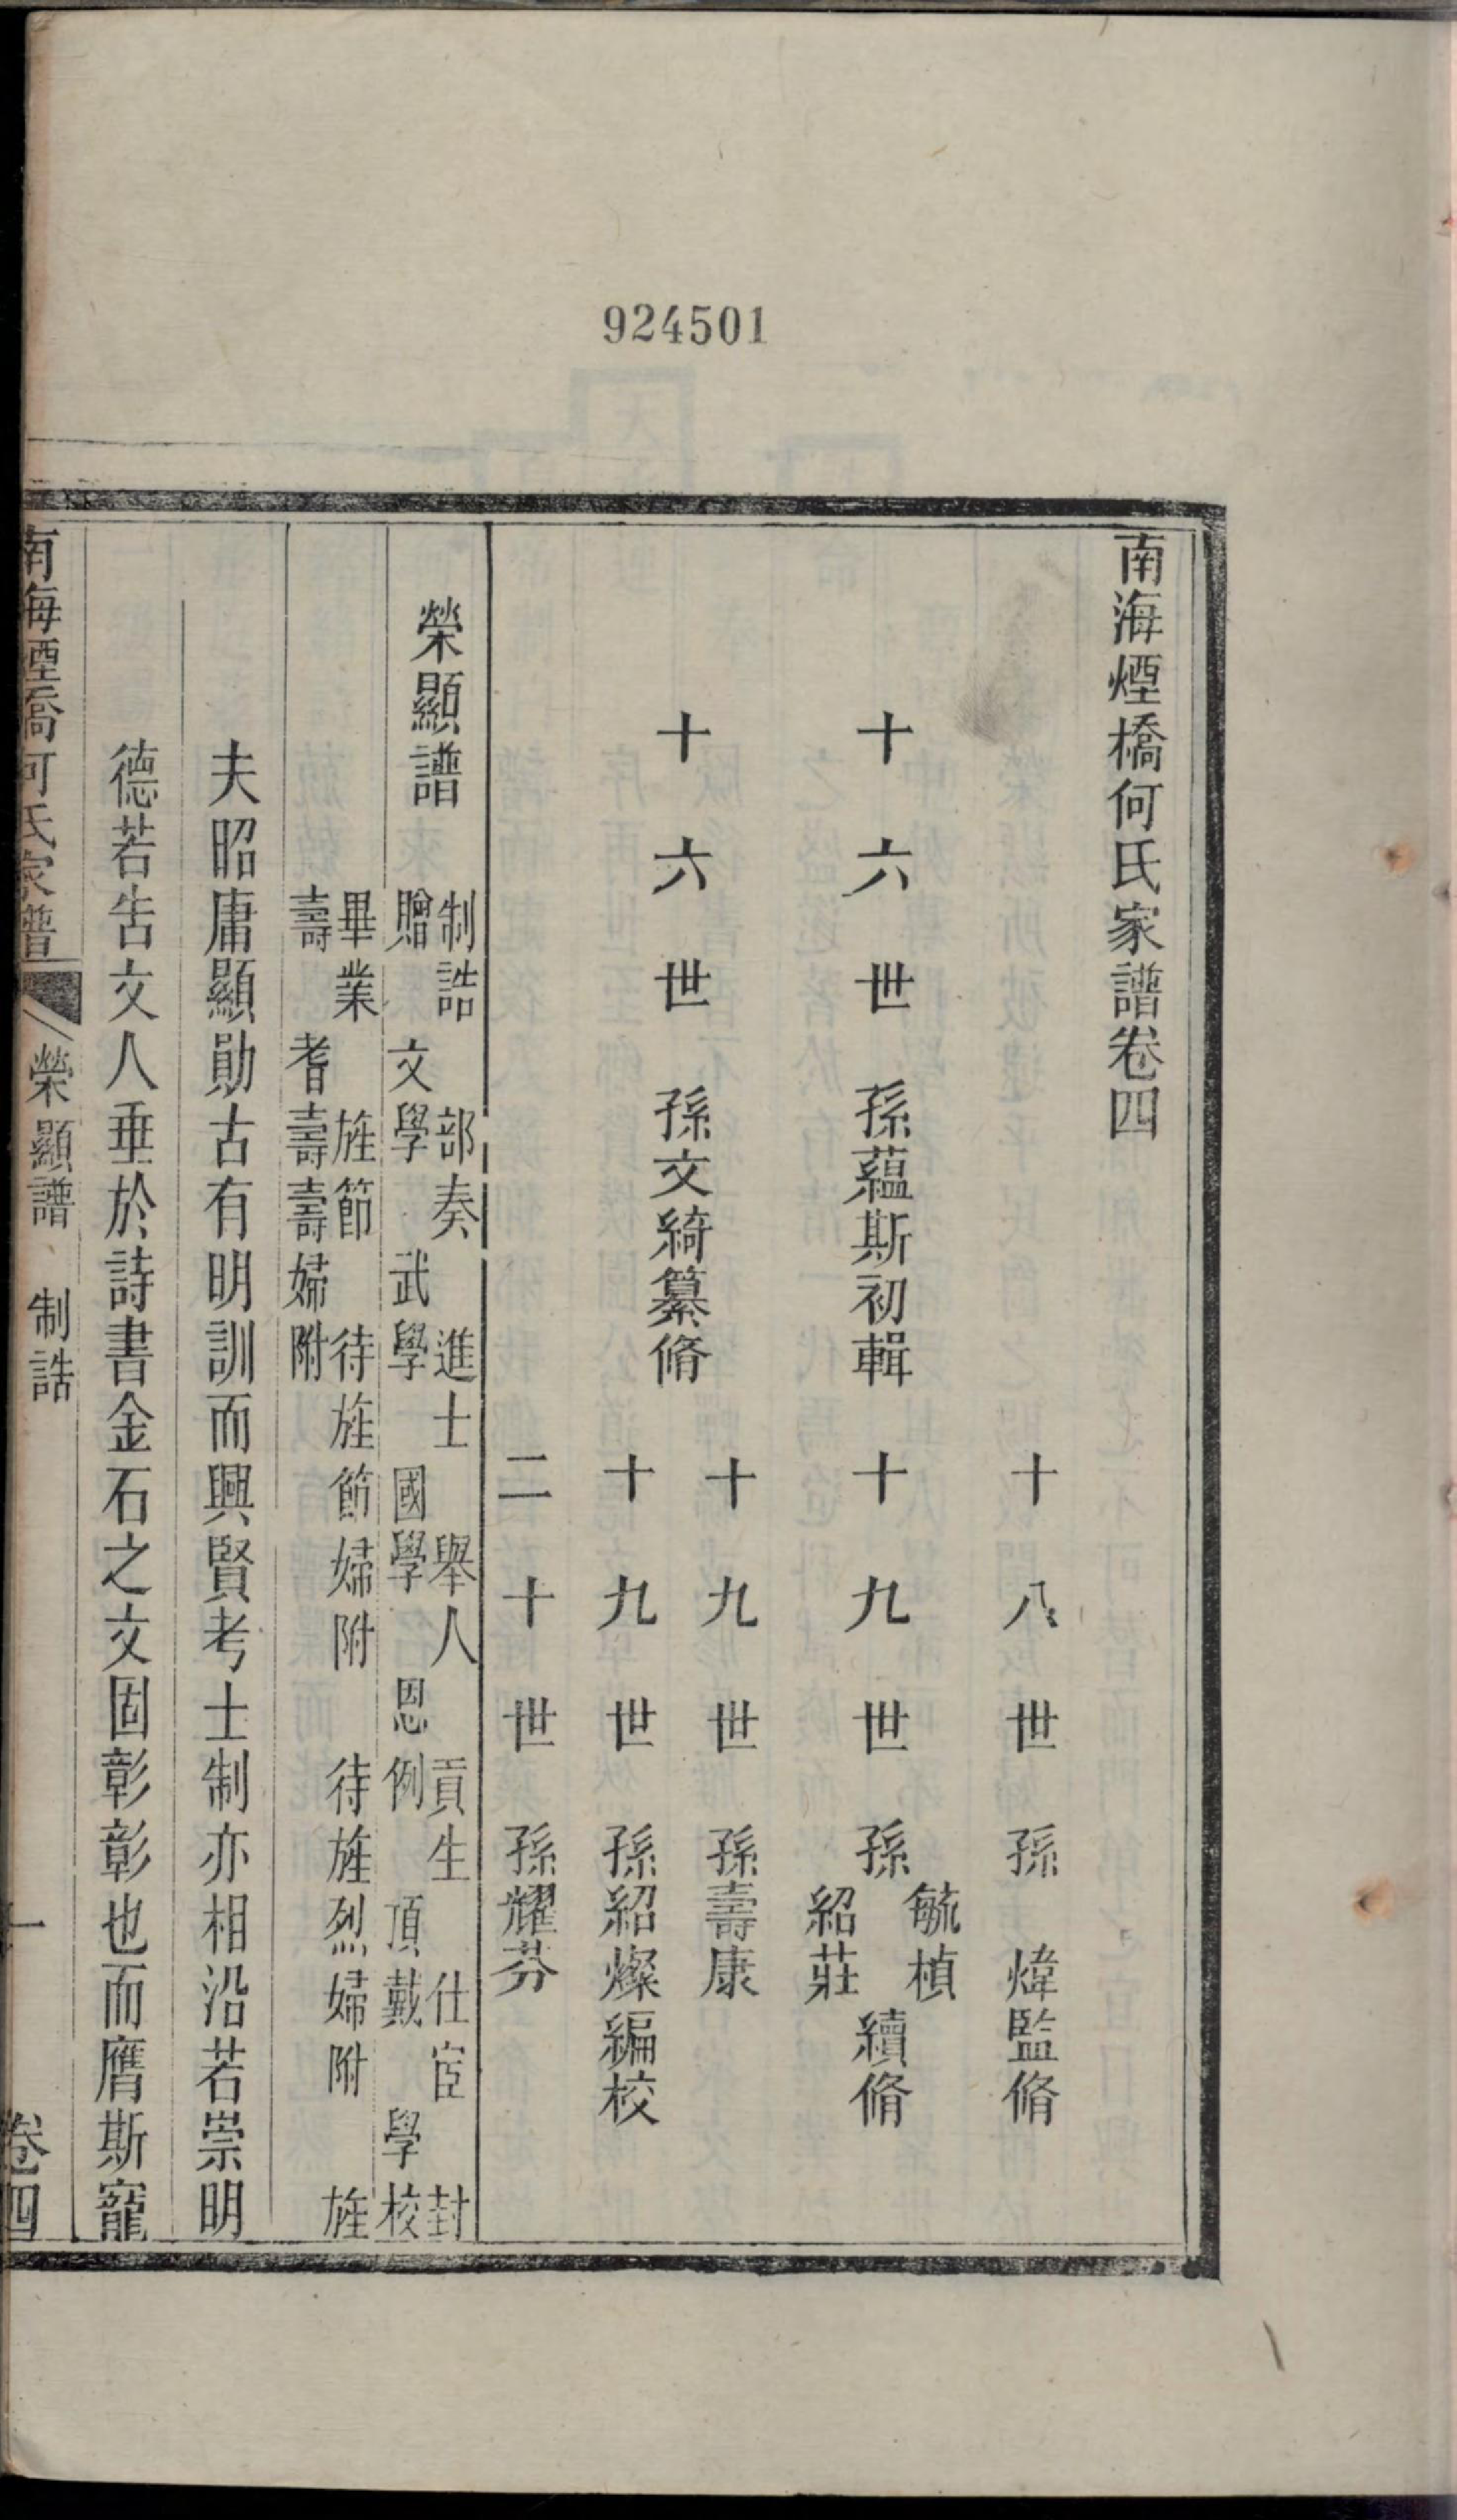 924501
南海煙橋何氏家譜卷四
十八世孫煒監脩
十六世孫蘊斯初輯
十九世孫毓楨紹莊續脩
十六世孫文綺纂脩
十九世孫壽康
十九世孫紹燦編校
二十世孫耀芬
榮顯譜
制誥 部奏 進士 舉人 貢生 仕宦 封
贈 文學 武學 國學 恩例 頂戴 學校
畢業 旌節 待旌節婦附 待旌烈婦附 旌
壽 耆壽壽婦附
夫昭庸顯勛古有明訓而興賢考士制亦相沿若崇明
德若告文人垂於詩書金石之文固彰彰也而膺斯寵
南海煙橋何氏家譜 榮顯譜 制誥 一 卷四